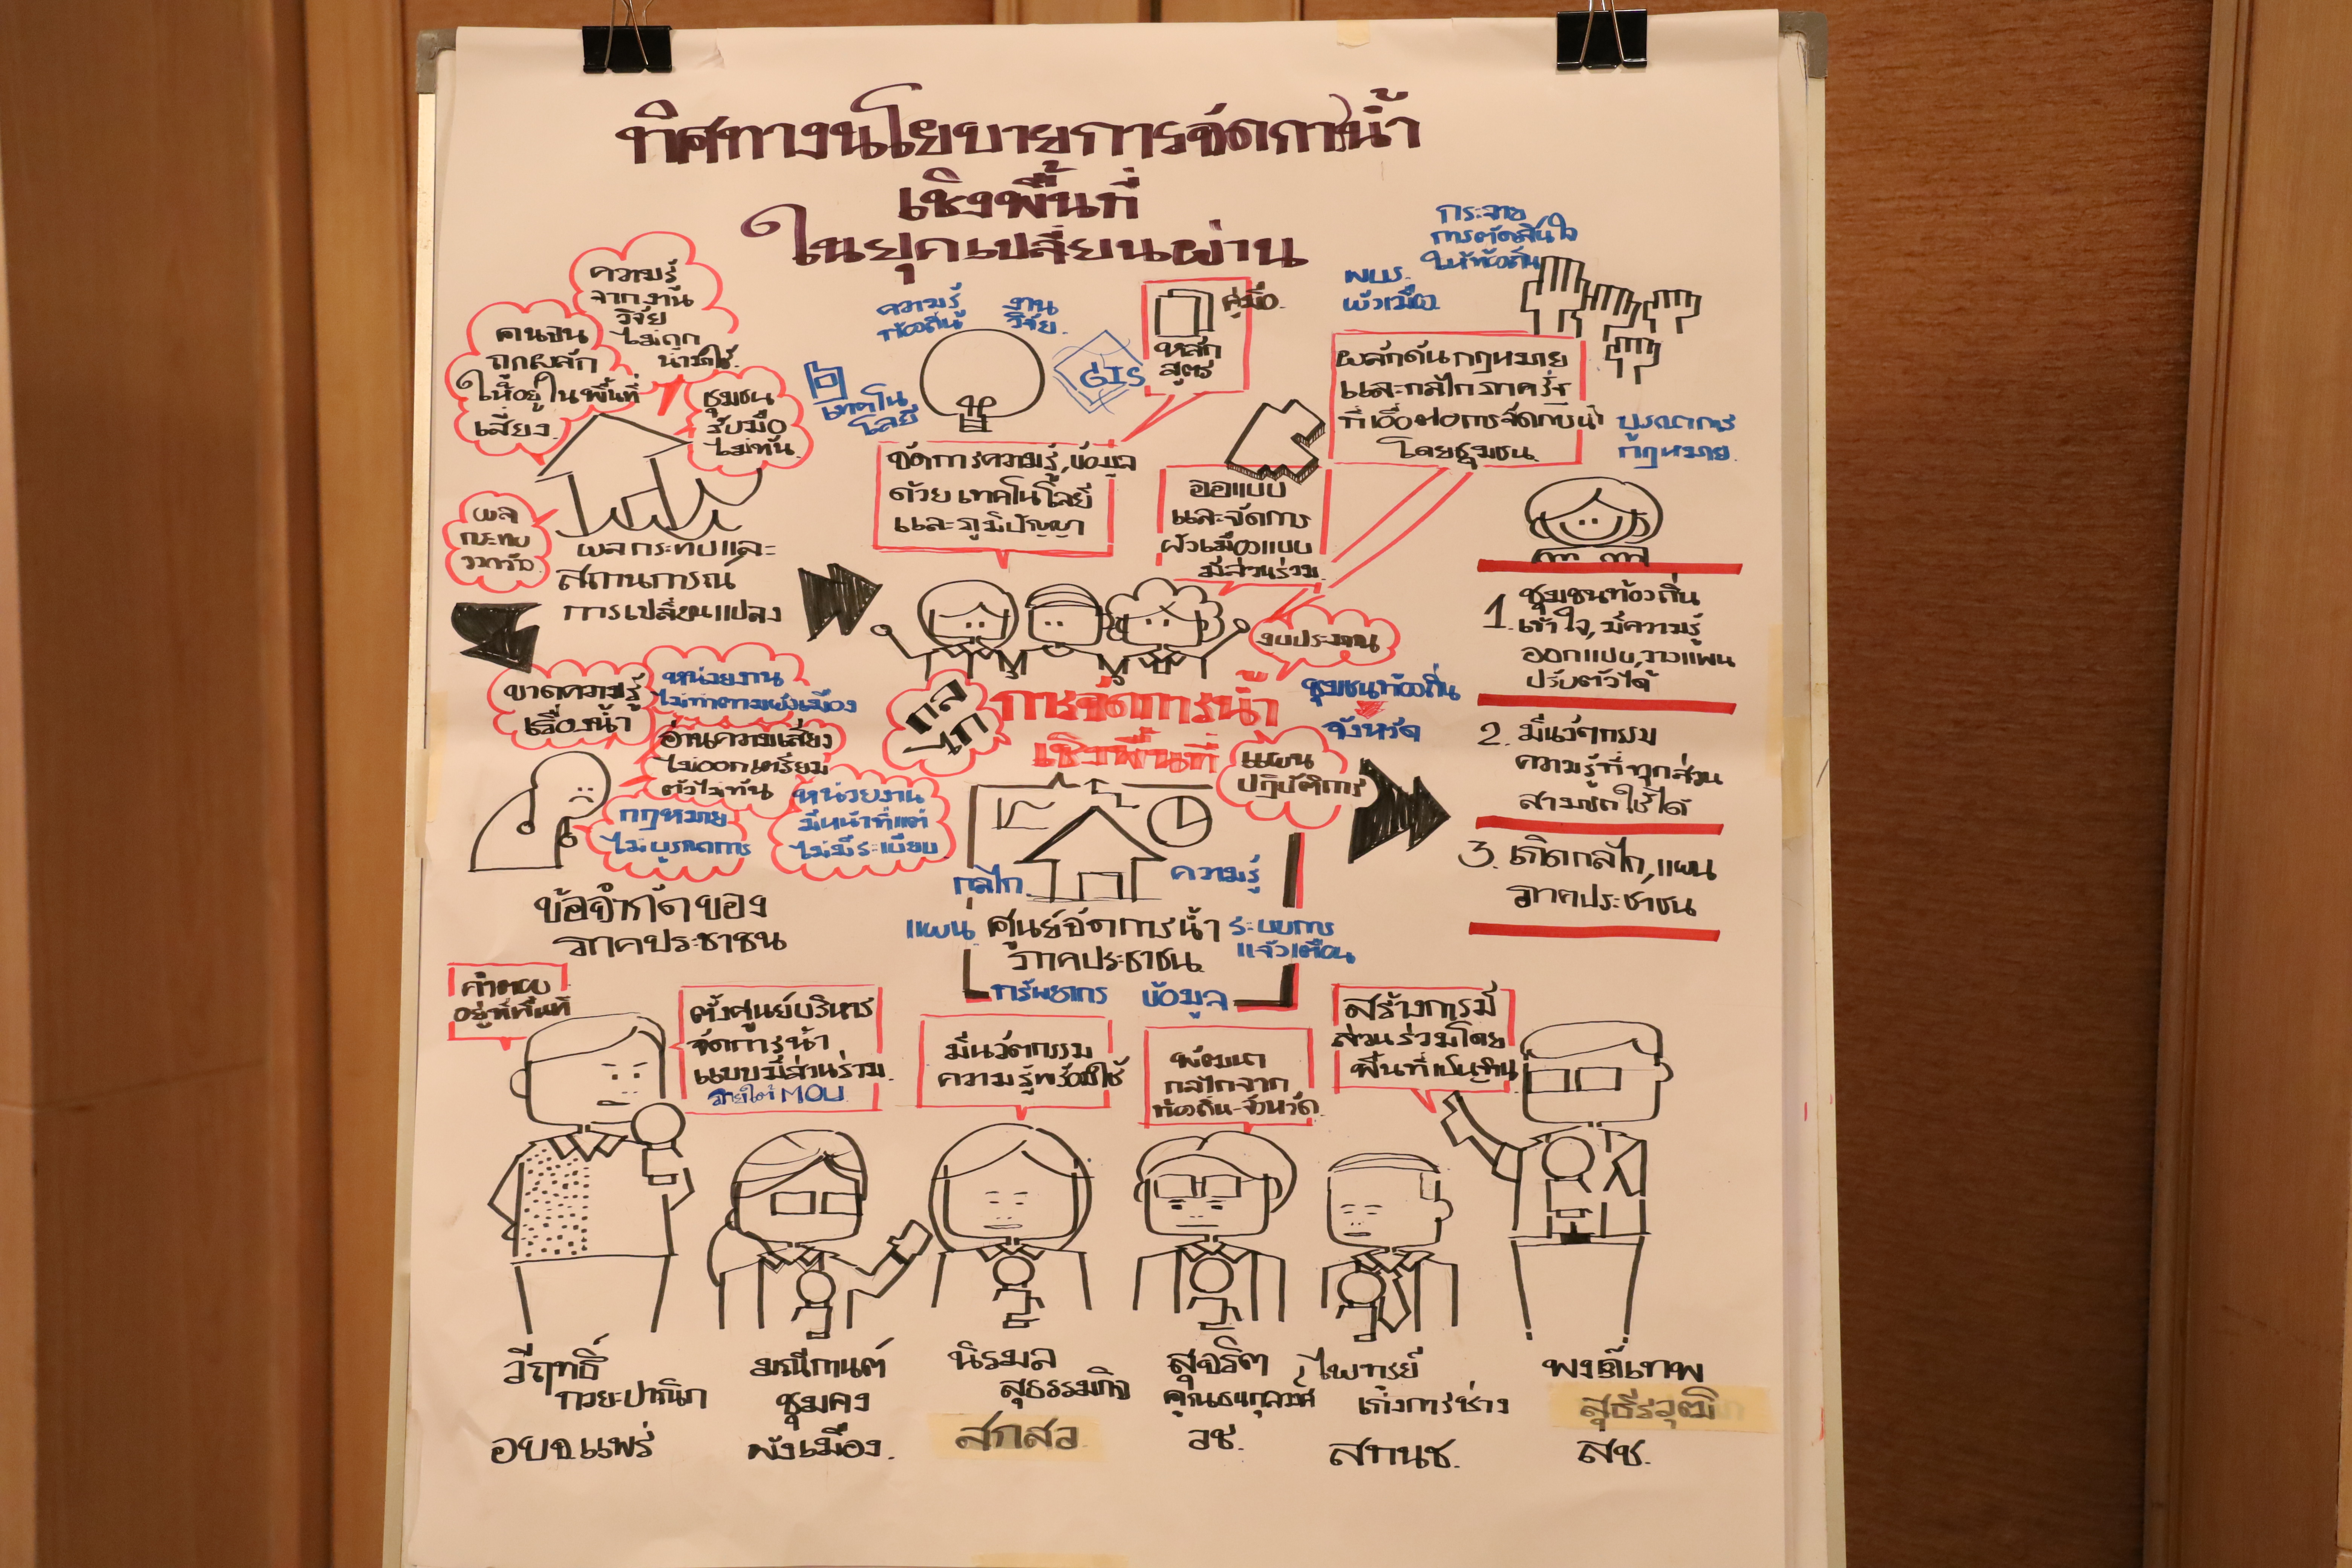 ทิศทางนโยบายการจัดการน้ำ
เชิงพื้นที่
ในยุคเปลี่ยนผ่าน
ความรู้
จากงาน
วิจัย
ไม่ถูก
นำมาใช้
คนจน
ถูกผลัก
ให้อยู่ในพื้นที่
เสี่ยง
ชุมชน
รับมือ
ไม่ทัน
ผล
กระทบ
ผลกระทบและ
สถานการณ์
การเปลี่ยนแปลง
ความรู้
ท้องถิ่น
งาน
วิจัย
เทคโน
โลยี
GIS
คู่มือ
หลัก
สูตร
จัดการความรู้, ข้อมูล
ด้วยเทคโนโลยี
และภูมิปัญญา
ออกแบบ
และจัดการ
ผังเมืองแบบ
มีส่วนร่วม
กระจาย
การตัดสินใจ
ให้ท้องถิ่น
พรบ.
ผังเมือง
ผลักดันกฎหมาย
และกลไกภาครัฐ
ที่เอื้อต่อการจัดการน้ำ
โดยชุมชน
บูรณาการ
กฎหมาย
1. ชุมชนท้องถิ่น
เข้าใจ, มีความรู้
ออกแบบ, วางแผน
ปรับตัวได้
2. มีนวัตกรรม
ความรู้ที่ทุกส่วน
สามารถใช้ได้
3. เกิดกลไก, แผน
ภาคประชาชน
งบประมาณ
ชุมชนท้องถิ่น
จังหวัด
กลไก
การจัดการน้ำ
เชิงพื้นที่
แผน
ปฏิบัติการ
ขาดความรู้
เรื่องน้ำ
หน่วยงาน
ไม่ทำตามผังเมือง
อ่านความเสี่ยง
ไม่ออกเตรียม
ตัวไม่ทัน
กฎหมาย
ไม่บูรณาการ
หน่วยงาน
มีหน้าที่แต่
ไม่มีระเบียบ
ข้อจำกัดของ
ภาคประชาชน
กลไก
ความรู้
แผน
ศูนย์จัดการน้ำ
ภาคประชาชน
ระบบการ
แจ้งเตือน
ทรัพยากร
ข้อมูล
คำตอบ
อยู่ที่พื้นที่
ตั้งศูนย์บริหาร
จัดการน้ำ
แบบมีส่วนร่วม
ภายใต้ MOU
มีนวัตกรรม
ความรู้พร้อมใช้
พัฒนา
กลไกจาก
ท้องถิ่น-จังหวัด
สร้างการมี
ส่วนร่วมโดย
พื้นที่เป็น
วีฤทธิ์
กวยะปาณิก
อบจ.แพร่
มณีกานต์
ชุมคง
ผังเมือง.
นิรมล
สุธรรมกิจ
สกสว
สุจริต
คูณธนกุลวงศ์
วช.
ไพฑูรย์
เก่งการช่าง
สทนช.
พงค์เทพ
สุธีรวุฒิ
สช.